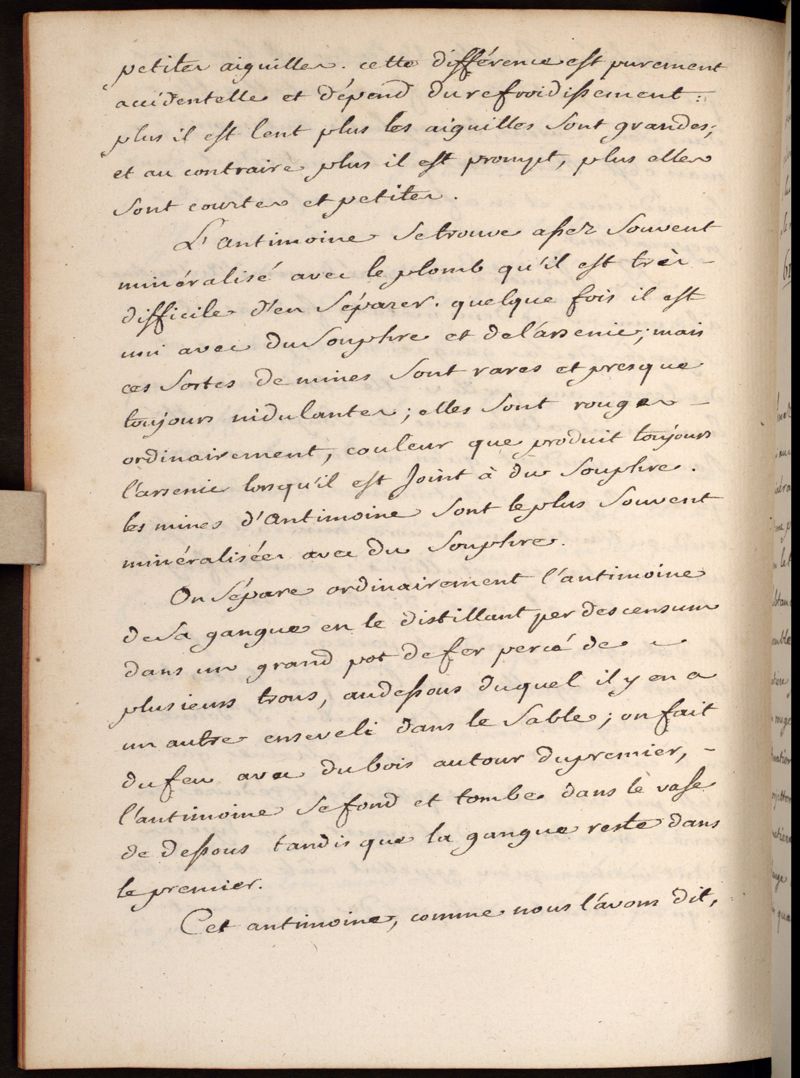 petites aiguilles. cette différence est purement
accidentelle et dépend du refroidissement :
plus il est lent plus les aiguilles sont grandes;
et au contraire plus il est prompt, plus elles
sont courtes et petites.
L'antimoine se trouve assez souvent
minéralisé avec le plomb qu'il est très
difficile d'en séparer. quelque fois il est
uni avec du souphre et de l'arsenic; mais
ces sortes de mines sont rares et presque
toujours nidulantes; elles sont rouges
ordinairement, couleur que produit toujours
l'arsenic lorsqu'il est joint à du souphre.
les mines d'antimoine sont le plus souvent
minéralisées avec du souphre.
On sépare ordinairement l'antimoine
de sa gangue en le distillant per descensum
dans un grand pot de fer percé de
plusieurs trous, au dessous duquel il y en a
un autre enseveli dans le sable; on fait
du feu avec du bois autour du premier,
l'antimoine se fond et tombe dans le vase
de dessous tandis que la gangue reste dans
le premier.
Cet antimoine, comme nous l'avons dit,